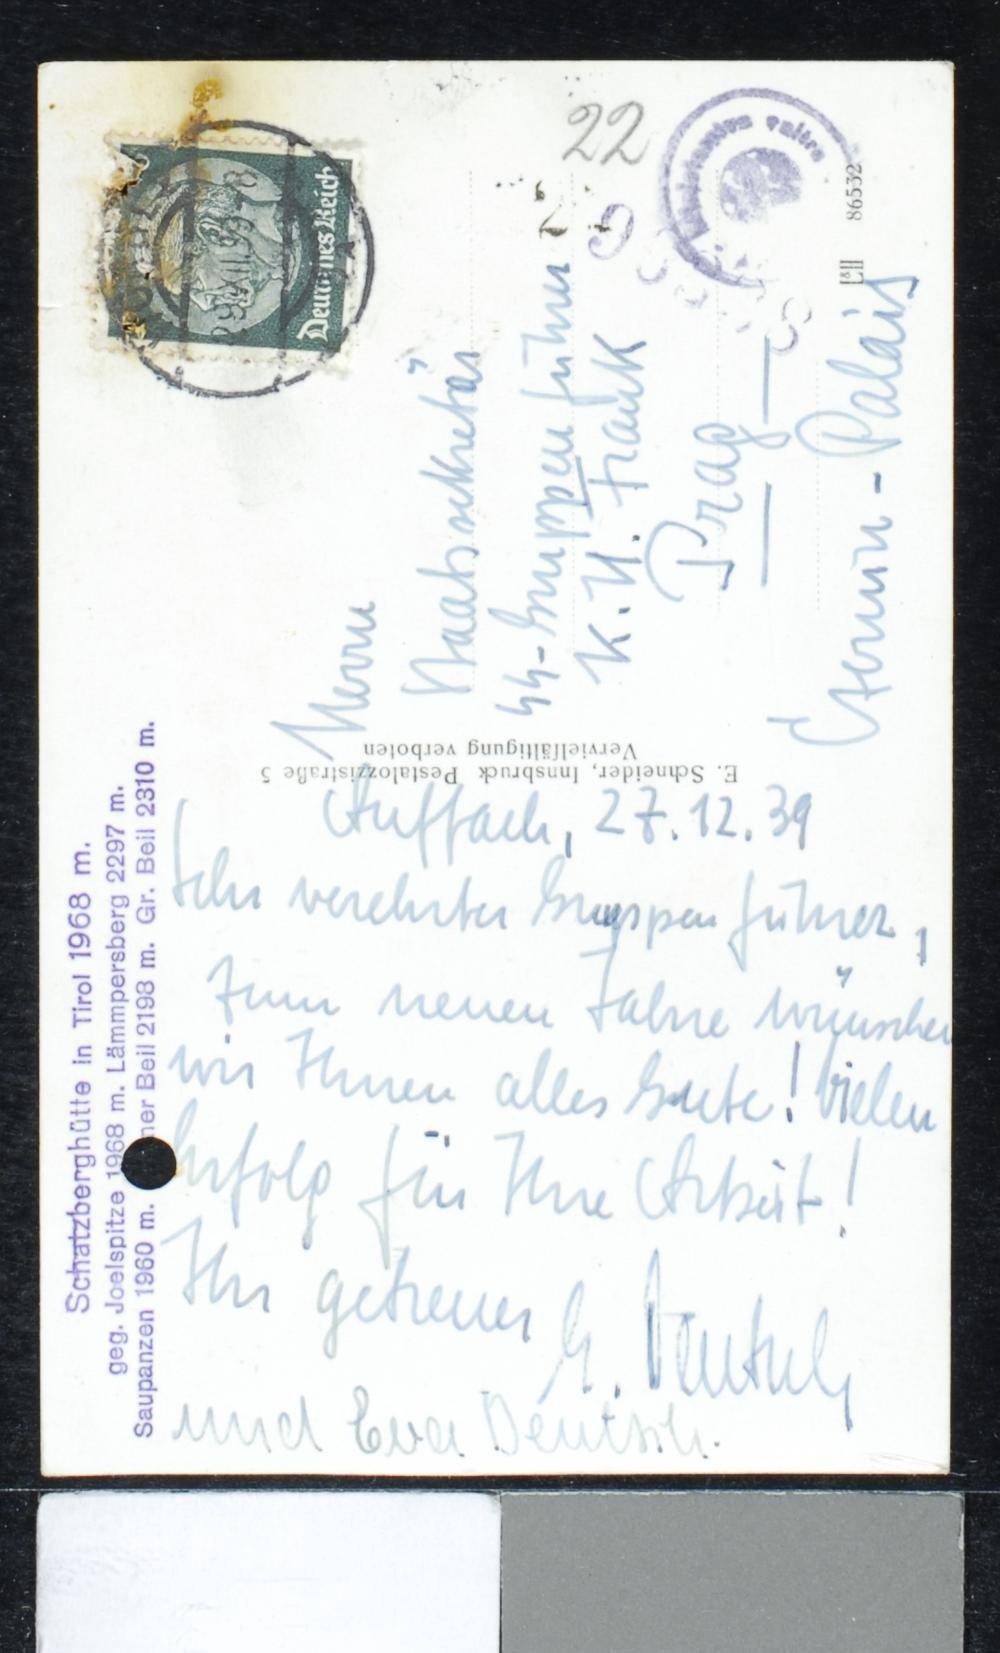 Schatzberghütte in Tirol 1968 m.
geg. Joelspitze 1968 m. Lämmpersberg 2297 m.
Saupanzen 1960 m. ner Beil 2198 m. Gr. Beil 2310 m.
Auffach, 27.12.39
Sehr verehrter Gruppenführer,
Zum neuen Jahre wünschen
wir Ihnen alles Gute! Vielen
Erfolg für Ihre Arbeit!
Ihr getreuer
G. Deutsch
und Eva Deutsch.
E. Schneider, Innsbruck Pestalozzistraße 5
Vervielfältigung verboten
Deutsches Reich
22
Herrn
Staatssekretär
SS-Gruppenführer
K. H. Frank
Prag
Czernin-Palais
86532